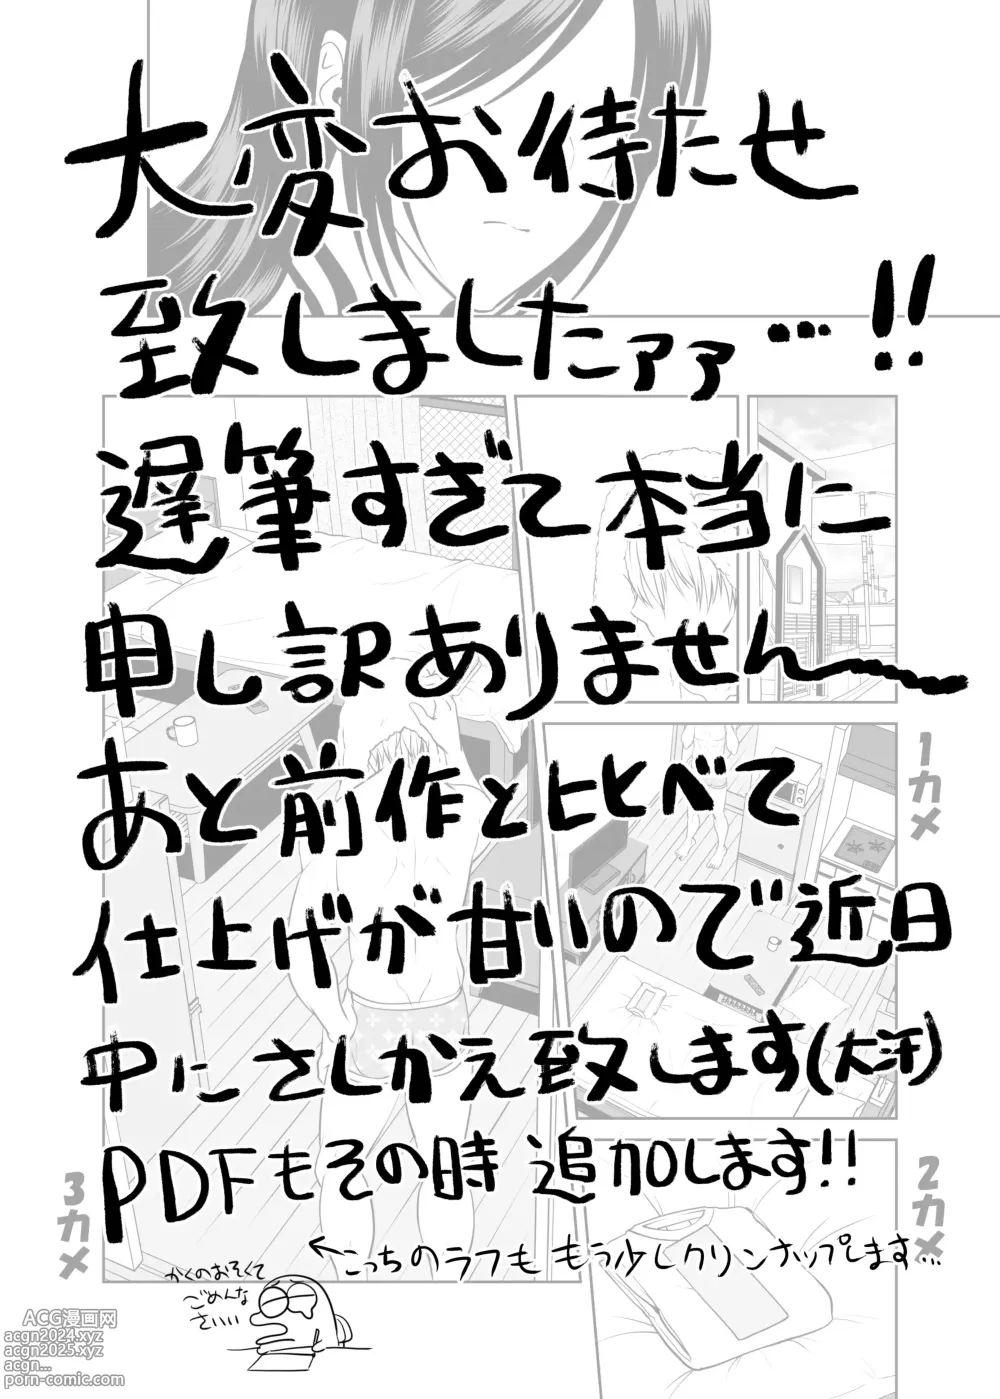 大変お待たせ
致しましたァァ…!!
遅筆すぎて本当に
申し訳ありません〜
あと前作と比べて
仕上げが甘いので近日
中にさしかえ致します(大汗)
PDFもその時追加します!!
←こっちのラフももう少しクリンナップします…
かくのおそくて
ごめんな
さいい
1カメ
2カメ
3カメ
ACG漫画网
acgn2024.xyz
acgn2025.xyz
acgn...
porn-comic.com